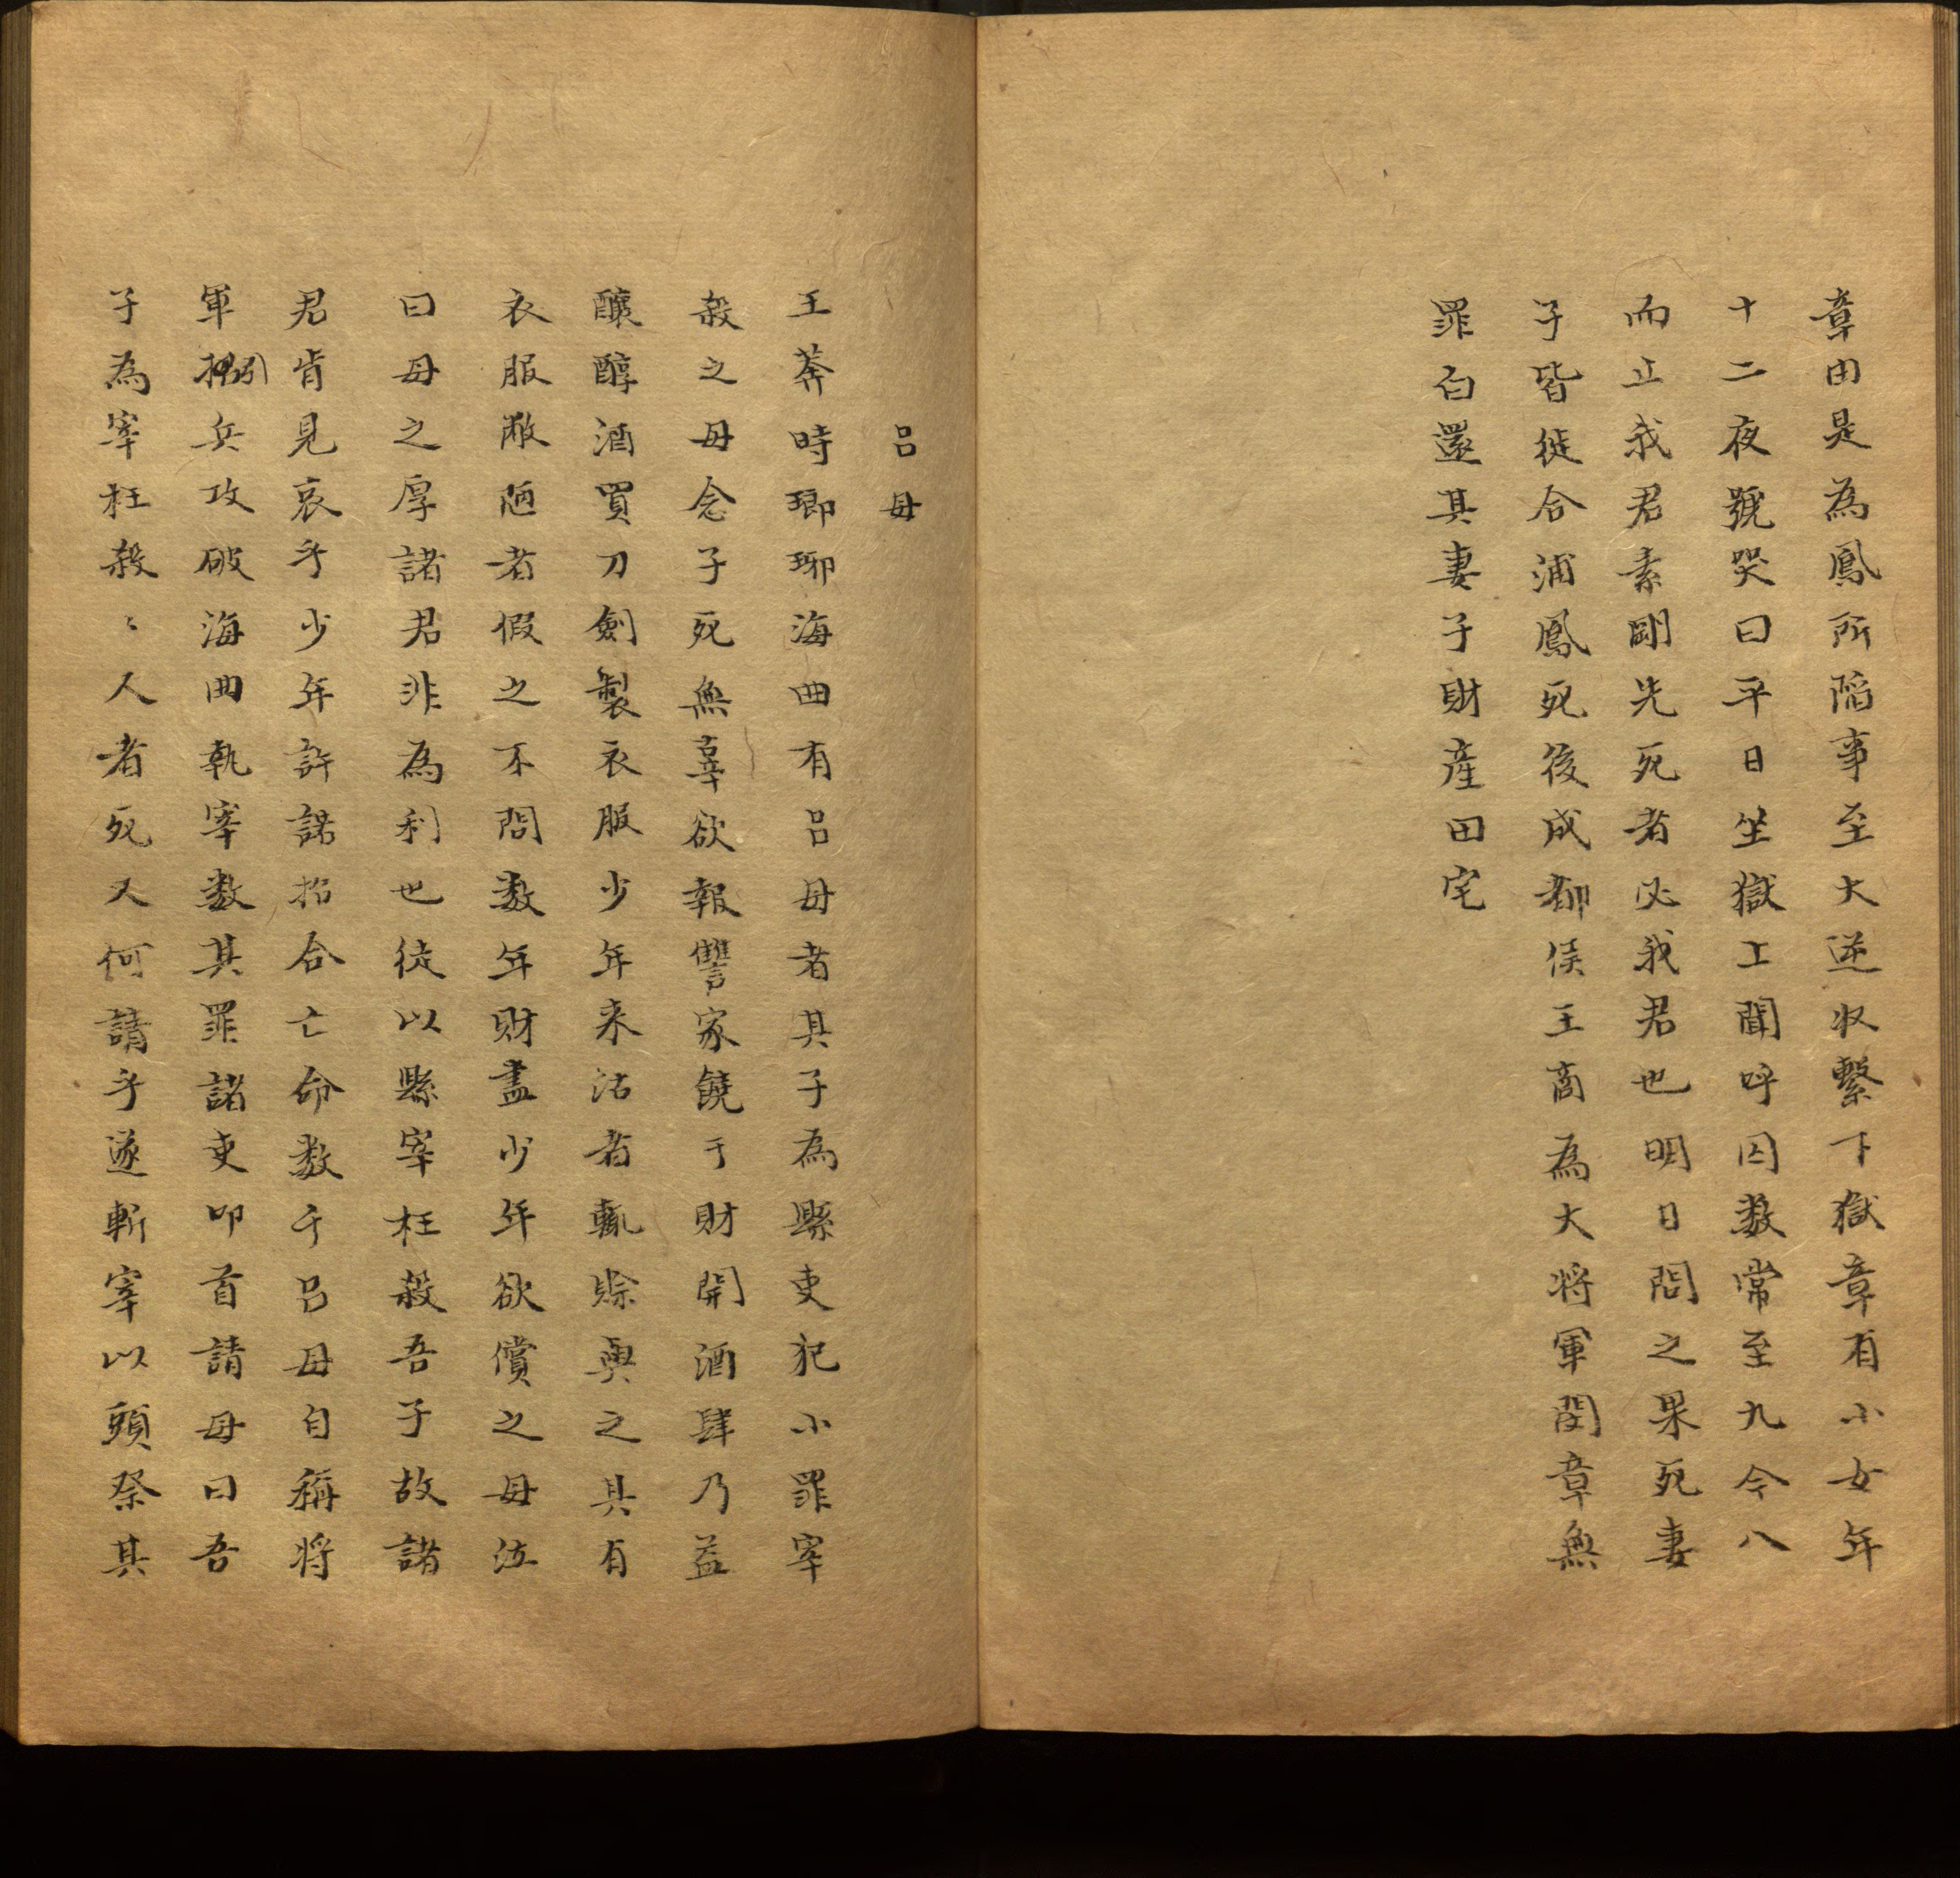 章由是為鳳所陷事至大逆收繫下獄章有小女年
十二夜號哭曰平日坐獄上聞呼囚數常至九今八
而止我君素剛先死者必我君也明日問之果死妻
子皆徙合浦鳳死後成都侯王商為大将軍閔章無
罪白還其妻子財産田宅
吕母
王莽時瑯琊海曲有吕母者其子為縣吏犯小罪宰
殺之母念子死無辜欲報讐家饒于財開酒肆乃益
釀醇酒買刀劍製衣服少年来沽者輒賒與之其有
衣服敝陋者假之不問數年財盡少年欲償之母泣
曰母之厚諸君非為利也徒以縣宰枉殺吾子故諸
君肯見哀乎少年許諾招合亡命數千吕母自稱将
軍引兵攻破海曲執宰數其罪諸吏叩首請母曰吾
子為宰枉殺〻人者死又何請乎遂斬宰以頭祭其